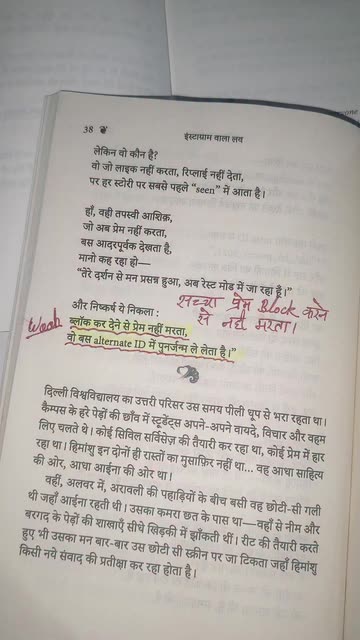 38
इंस्टाग्राम वाला लव
लेकिन वो कौन है?
वो जो लाइक नहीं करता, रिप्लाई नहीं देता,
पर हर स्टोरी पर सबसे पहले “seen” में आता है।
हाँ, वही तपस्वी आशिक़,
जो अब प्रेम नहीं करता,
बस आदरपूर्वक देखता है,
मानो कह रहा हो—
“तेरे दर्शन से मन प्रसन्न हुआ, अब रेस्ट मोड में जा रहा है।”
सच्चा प्रेम Block करने
से नहीं मरता।
और निष्कर्ष ये निकला :
ब्लॉक कर देने से प्रेम नहीं मरता,
वो बस alternate ID में पुनर्जन्म ले लेता है।”
दिल्ली विश्वविद्यालय का उत्तरी परिसर उस समय पीली धूप से भरा रहता था।
कैम्पस के हरे पेड़ों की छाँव में स्टूडेंट्स अपने-अपने वायदे, विचार और वहम
लिए चलते थे। कोई सिविल सर्विसेज़ की तैयारी कर रहा था, कोई प्रेम में हार
रहा था। हिमांशु इन दोनों ही रास्तों का मुसाफ़िर नहीं था... वह आधा साहित्य
की ओर, आधा आईना की ओर था।
वहीं, अलवर में, अरावली की पहाड़ियों के बीच बसी वह छोटी-सी गली
थी जहाँ आईना रहती थी। उसका कमरा छत के पास था—वहाँ से नीम और
बरगद के पेड़ों की शाखाएँ सीधे खिड़की में झाँकती थीं। रीट की तैयारी करते
हुए भी उसका मन बार-बार उस छोटी सी स्क्रीन पर जा टिकता जहाँ हिमांशु
किसी नये संवाद की प्रतीक्षा कर रहा होता है।